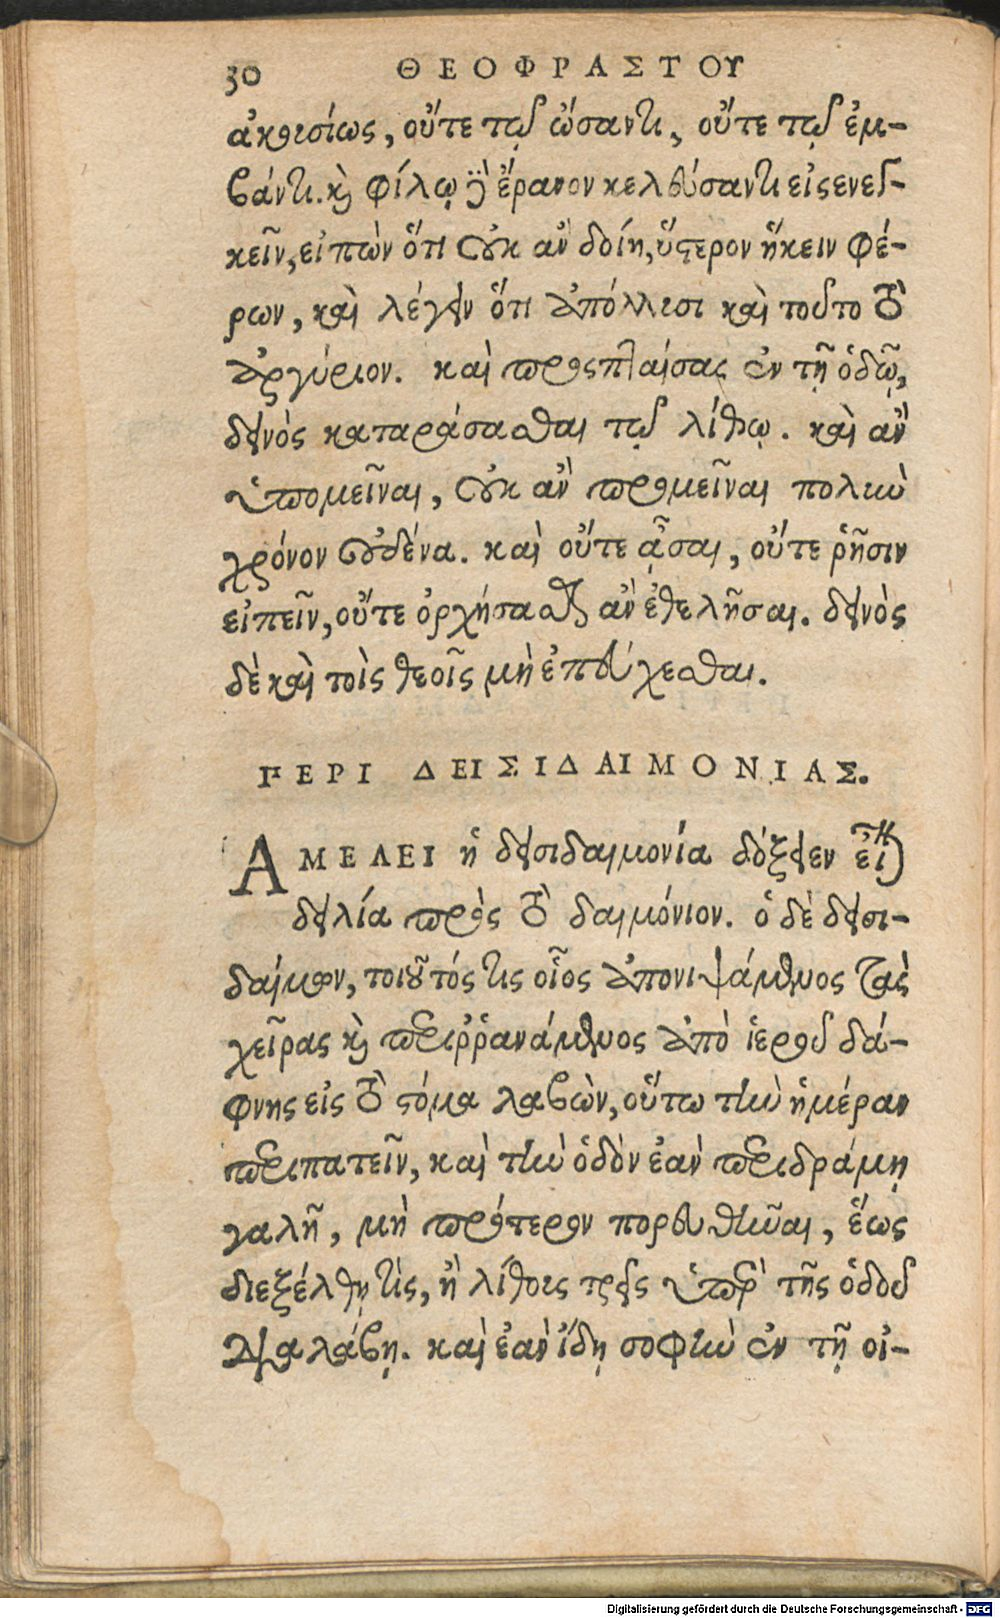 30 ΘΕΟΦΡΑΣΤΟΥ
ἀκουσίως, οὔτε τῷ ὤσαντι, οὔτε τῷ ἐμ-
βάντι. καὶ φίλῳ δὲ ἔρανον κελεύσαντι εἰσενεγ-
κεῖν, εἰπὼν ὅτι οὐκ ἂν δοίη, ὕστερον ἥκειν φέ-
ρων, καὶ λέγειν ὅτι ἀπόλλυσι καὶ τοῦτο τὸ
ἀργύριον. καὶ προσπταίσας ἐν τῇ ὁδῷ,
δεινὸς καταράσασθαι τῷ λίθῳ. καὶ ἂν
ὑπομεῖναι, οὐκ ἂν προμεῖναι πολὺν
χρόνον οὐδένα. καὶ οὔτε ᾆσαι, οὔτε ῥῆσιν
εἰπεῖν, οὔτε ὀρχήσασθαι ἂν ἐθελῆσαι. δεινὸς
δὲ καὶ τοῖς θεοῖς μὴ ἐπεύχεσθαι.
ΠΕΡΙ ΔΕΙΣΙΔΑΙΜΟΝΙΑΣ.
ΑΜΕΛΕΙ ἡ δεισιδαιμονία δόξειεν εἶναι
δειλία πρὸς τὸ δαιμόνιον. ὁ δὲ δεισι-
δαίμων, τοιοῦτός τις οἷος ἀπονιψάμενος τὰς
χεῖρας καὶ περιῤῥανάμενος ἀπὸ ἱεροῦ δά-
φνης εἰς τὸ στόμα λαβὼν, οὕτω τὴν ἡμέραν
περιπατεῖν, καὶ τὴν ὁδὸν ἐὰν περιδράμῃ
γαλῆ, μὴ πρότερον πορευθῆναι, ἕως
διεξέλθῃ τὶς, ἢ λίθους τρεῖς ὑπὲρ τῆς ὁδοῦ
διαλάβῃ. καὶ ἐὰν ἴδῃ σοφὴν ἐν τῇ οἰ-
Digitalisierung gefördert durch die Deutsche Forschungsgemeinschaft - DFG